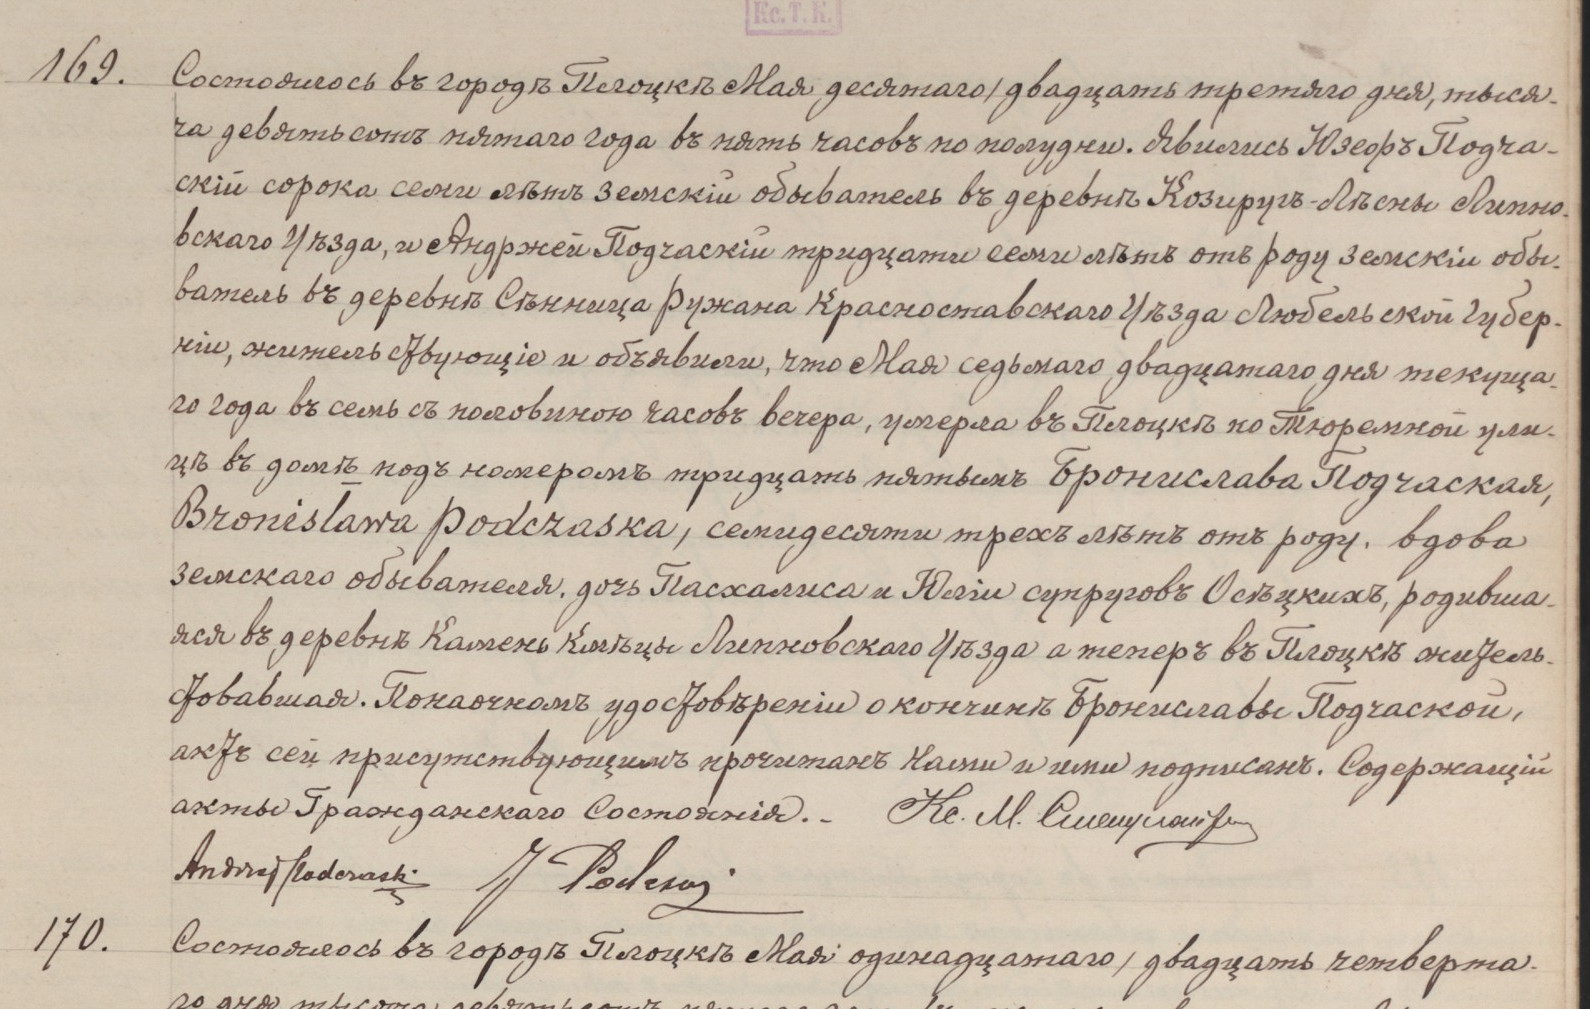 Кс. Т. К.
169. Состоялось въ городѣ Плоцкѣ Мая десятаго/двадцать третяго дня, тыся-
ча девятьсотъ пятаго года въ пять часовъ по полудни. Явились Юзефъ Подча-
скій сорока семи лѣтъ земскій обыватель въ деревнѣ Козиругъ-Лѣсны Липно-
вскаго Уѣзда, и Андржей Подчаскій тридцати семи лѣтъ отъ роду земскій обы-
ватель въ деревнѣ Сѣнница Ружана Красноставскаго Уѣзда Любельской Губер-
ніи, жительствующіе и объявили, что Мая седьмаго двадцатаго дня текуща-
го года въ семь съ половиною часовъ вечера, умерла въ Плоцкѣ по Тюремной ули-
цѣ въ домѣ подъ номеромъ тридцать пятымъ Бронислава Подчаская,
Bronisława Podczaska, семидесяти трехъ лѣтъ отъ роду, вдова
земскаго обывателя, дочь Пасхалиса и Юліи супруговъ Осѣцкихъ, родивша-
яся въ деревнѣ Камень Кмѣцы Липновскаго Уѣзда а теперъ въ Плоцкѣ житель-
ствовавшая. Понаочномъ удостовѣреніи о кончинѣ Брониславы Подчаской,
актъ сей присутствующимъ прочитанъ Нами и ими подписанъ. Содержащій
акты Гражданскаго Состоянія. - Кс. М.
Andrzej Podczaski J Podczaski
170. Состоялось въ городѣ Плоцкѣ Мая одинадцатаго/двадцать четверта-
го дня тысяча девятьсотъ пятаго года